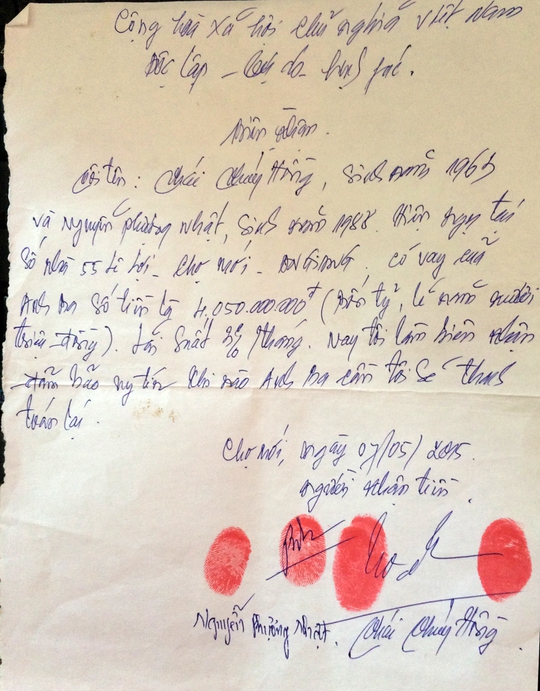 Cộng hòa xã hội chủ nghĩa Việt Nam
Độc lập - Tự do - hạnh phúc.
Biên nhận.
Tôi tên: Thái Thúy Hồng, sinh năm 1965
và Nguyễn Phượng Nhật, sinh năm 1988. Hiện ngụ tại
Số nhà 55 Lê Lợi - Chợ mới - AN GIANG, có vay của
Anh Ba số tiền là 4.050.000.000đ (Bốn tỷ, lẻ năm mươi
triệu đồng). Lãi suất 3%/tháng. Nay tôi làm biên nhận
đảm bảo uy tín khi nào Anh Ba cần tôi sẽ thanh
toán lại.
Chợ mới, ngày 07/05/2015.
Người nhận tiền.
Nguyễn Phượng Nhật. Thái Thúy Hồng.